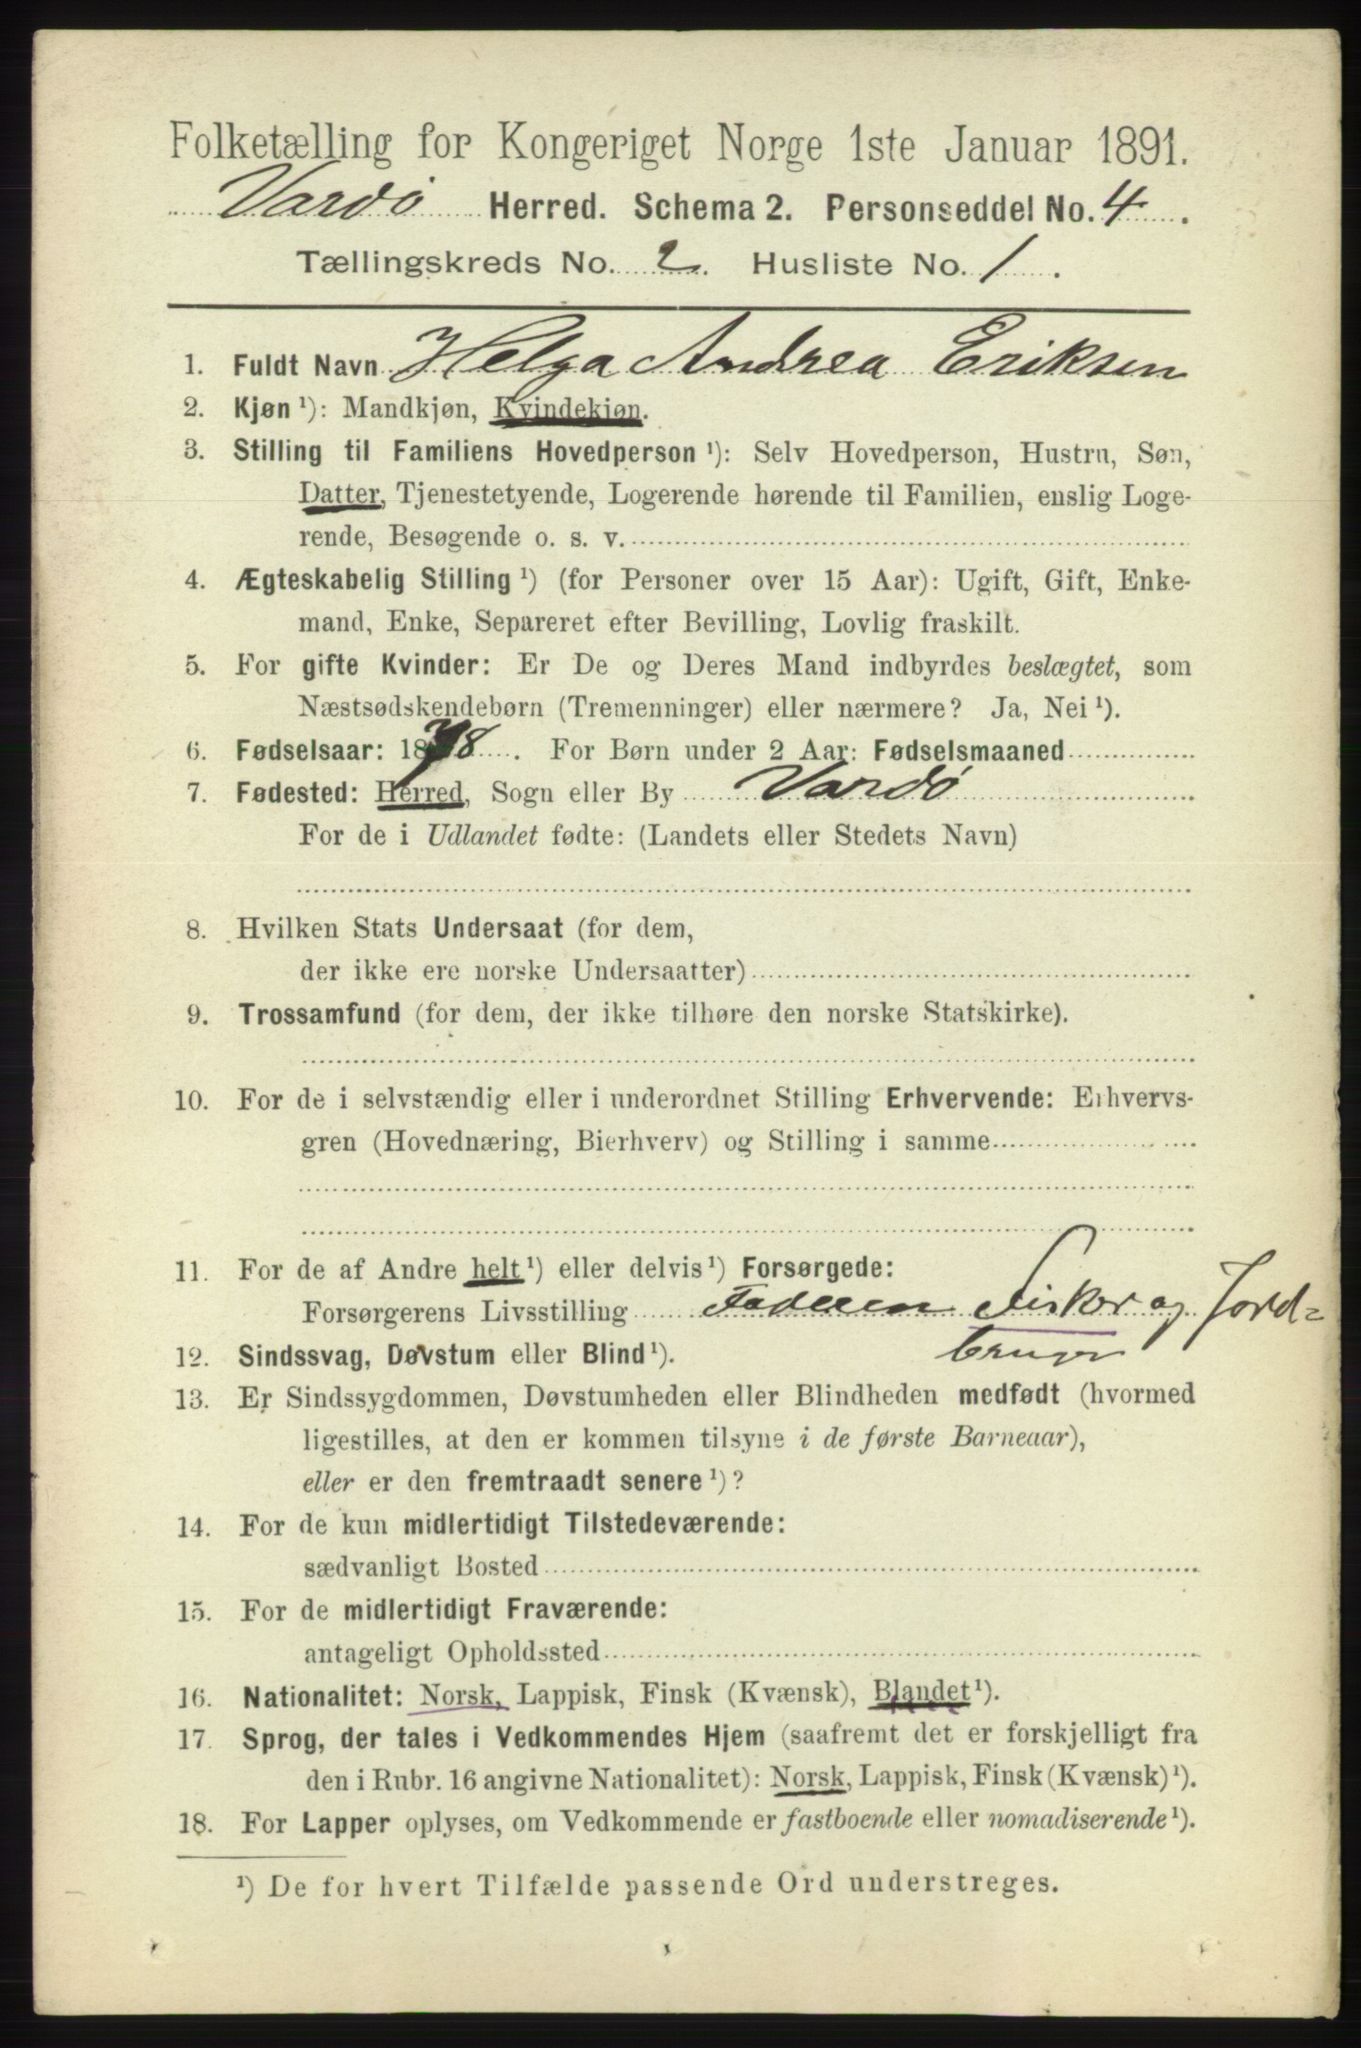 Folketælling for Kongeriget Norge 1ste Januar 1891.
Vardø Herred. Schema 2. Personseddel No. 4.
Tællingskreds No. 2. Husliste No. 1.
1. Fuldt Navn Helga Andrea Eriksen
2. Kjøn ¹): Mandkjøn, Kvindekjøn.
3. Stilling til Familiens Hovedperson ¹): Selv Hovedperson, Hustru, Søn,
Datter, Tjenestetyende, Logerende hørende til Familien, enslig Loge-
rende, Besøgende o. s. v.
4. Ægteskabelig Stilling ¹) (for Personer over 15 Aar): Ugift, Gift, Enke-
mand, Enke, Separeret efter Bevilling, Lovlig fraskilt.
5. For gifte Kvinder: Er De og Deres Mand indbyrdes beslægtet, som
Næstsødskendebørn (Tremenninger) eller nærmere? Ja, Nei ¹).
6. Fødselsaar: 1878. For Børn under 2 Aar: Fødselsmaaned
7. Fødested: Herred, Sogn eller By Vardø
For de i Udlandet fødte: (Landets eller Stedets Navn)
8. Hvilken Stats Undersaat (for dem,
der ikke ere norske Undersaatter)
9. Trossamfund (for dem, der ikke tilhøre den norske Statskirke).
10. For de i selvstændig eller i underordnet Stilling Erhvervende: Erhvervs-
gren (Hovednæring, Bierhverv) og Stilling i samme
11. For de af Andre helt ¹) eller delvis ¹) Forsørgede:
Forsørgerens Livsstilling Faderen Fisker og Jord=
bruger
12. Sindssvag, Døvstum eller Blind ¹).
13. Er Sindssygdommen, Døvstumheden eller Blindheden medfødt (hvormed
ligestilles, at den er kommen tilsyne i de første Barneaar),
eller er den fremtraadt senere ¹)?
14. For de kun midlertidigt Tilstedeværende:
sædvanligt Bosted
15. For de midlertidigt Fraværende:
antageligt Opholdssted
16. Nationalitet: Norsk, Lappisk, Finsk (Kvænsk), Blandet ¹).
17. Sprog, der tales i Vedkommendes Hjem (saafremt det er forskjelligt fra
den i Rubr. 16 angivne Nationalitet): Norsk, Lappisk, Finsk (Kvænsk) ¹).
18. For Lapper oplyses, om Vedkommende er fastboende eller nomadiserende ¹).
¹) De for hvert Tilfælde passende Ord understreges.